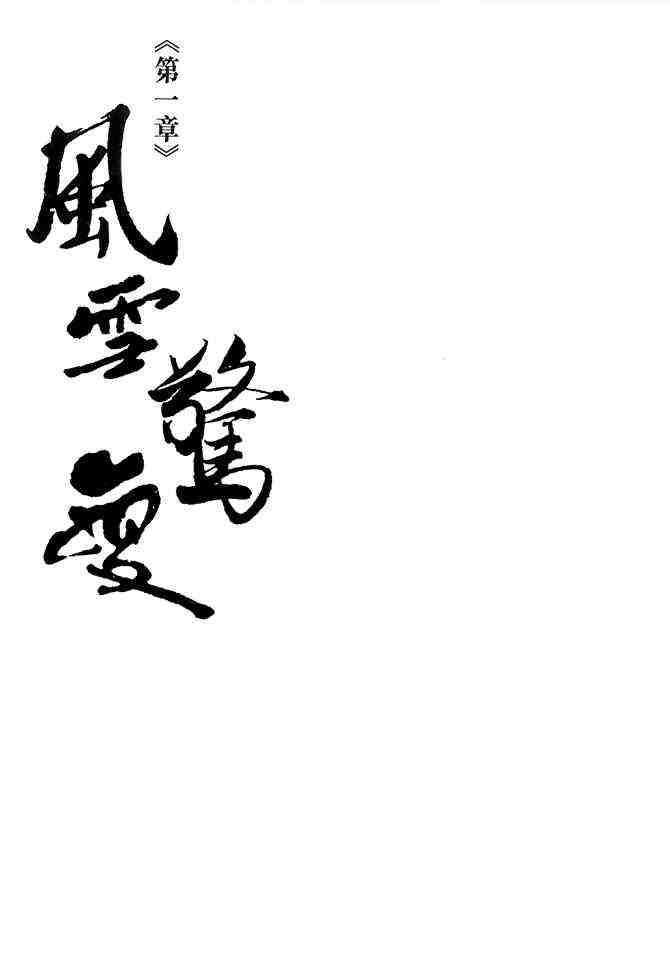 《第一章》
風雪驚變